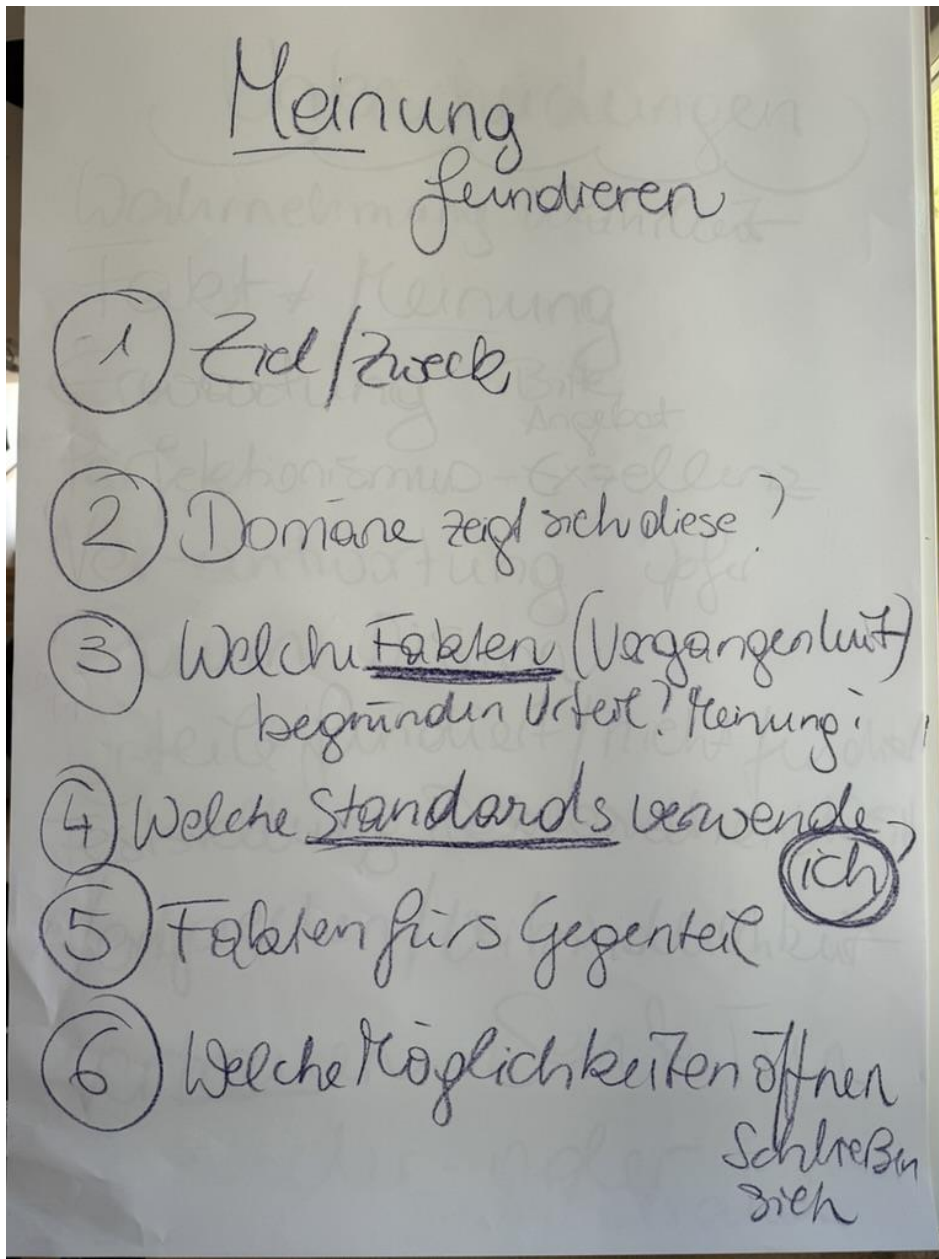 Meinung
fundieren
1 Ziel/Zweck
2 Domäne zeigt sich diese?
3 Welche Fakten (Vergangenheit)
begründen Urteil? Meinung?
4 Welche Standards verwende
ich?
5 Fakten fürs Gegenteil
6 Welche Möglichkeiten öffnen
Schließen
sich